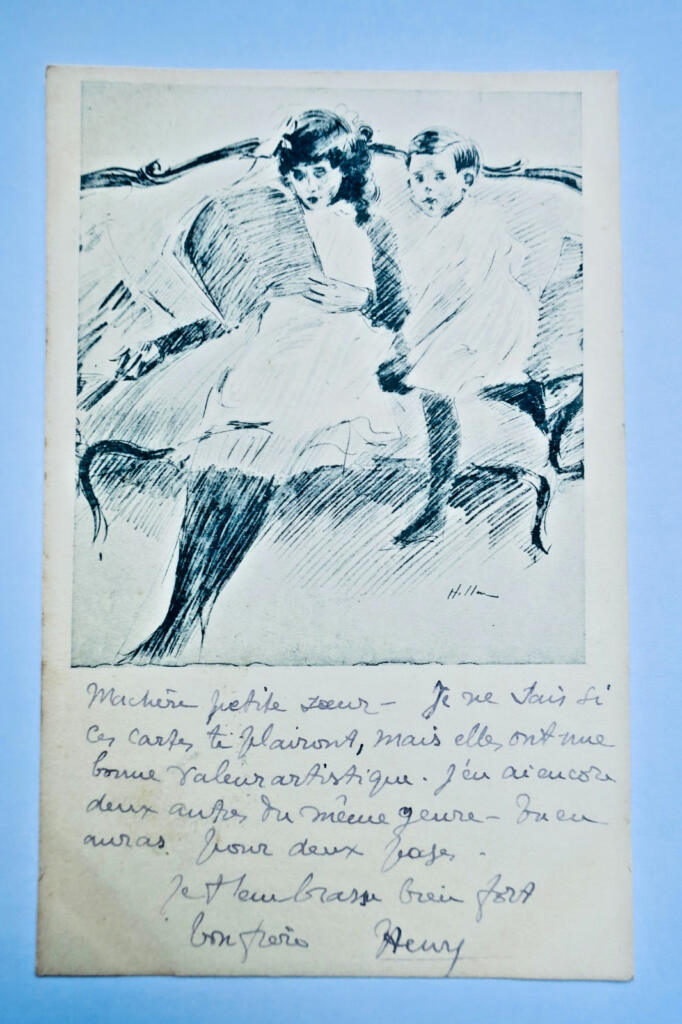 Helleu
Ma chère petite sœur - Je ne sais si
ces cartes te plairont, mais elles ont une
bonne valeur artistique. J'en ai encore
deux autres du même genre - tu en
auras pour deux pages.
Je t'embrasse bien fort
ton frère Henry